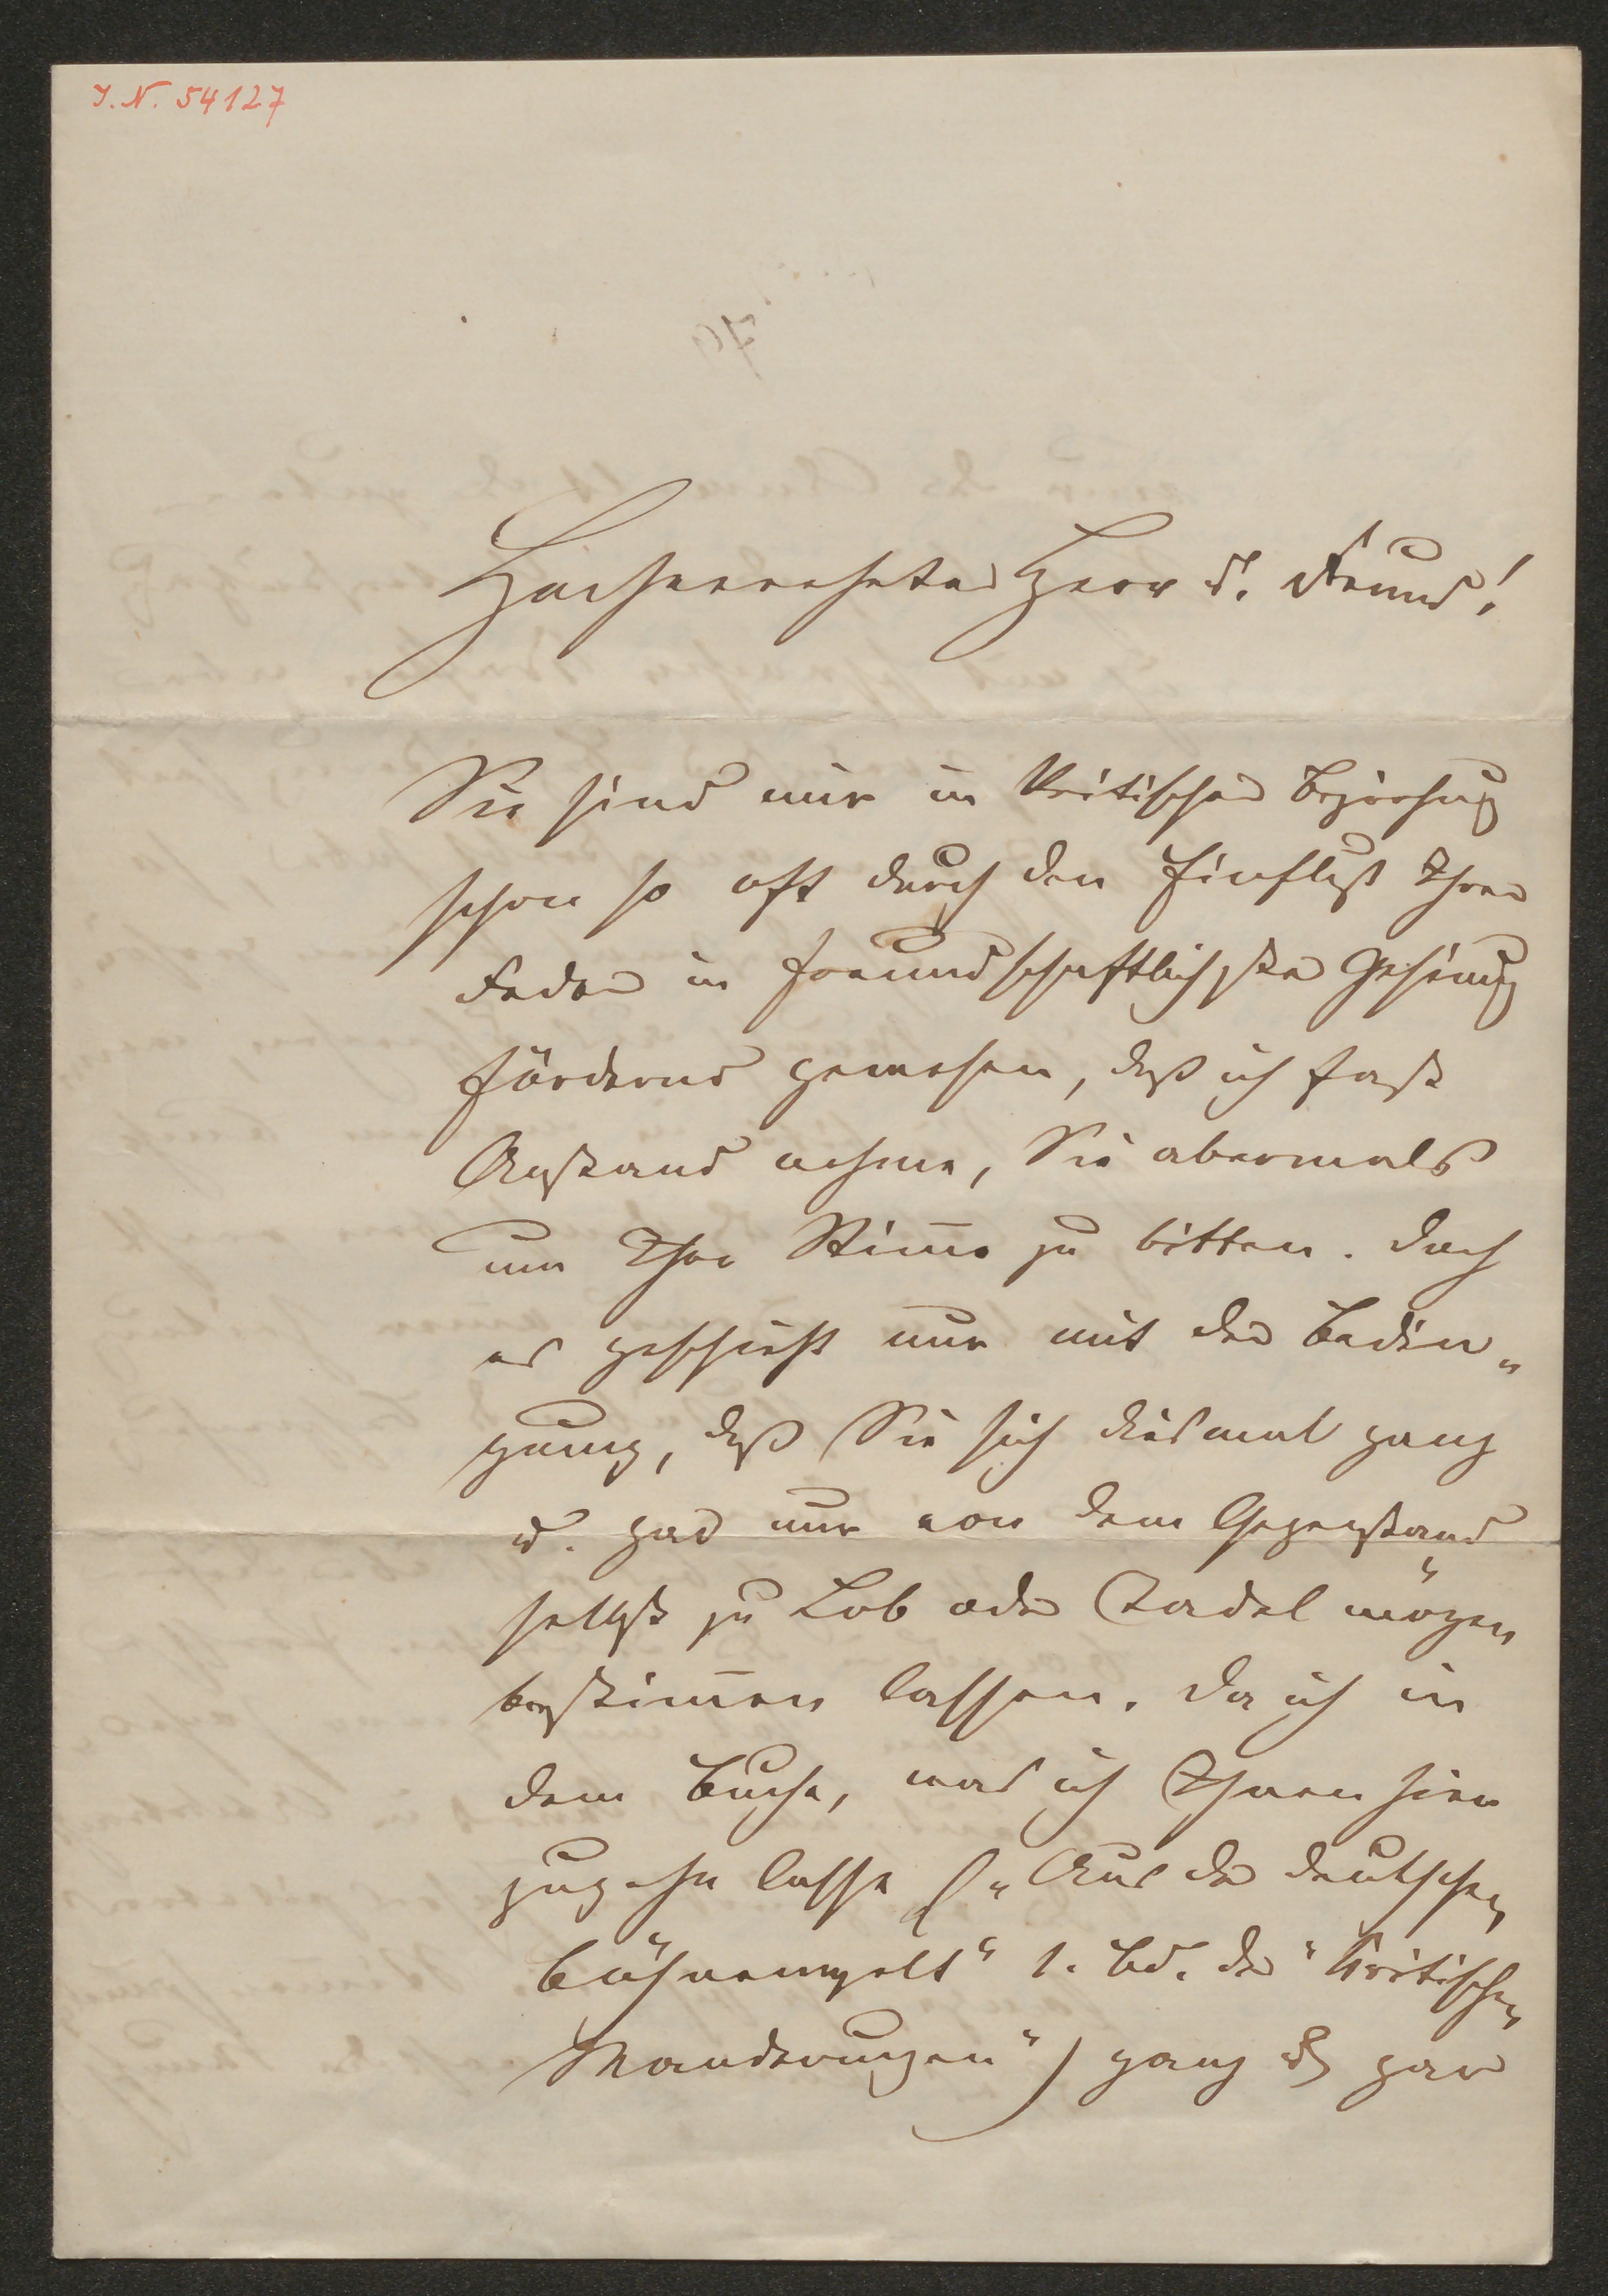 I. N. 54127
Hochverehrter Herr u. Freund!
Sie sind mir in kritischer Beziehung
schon so oft durch den Einfluß Ihrer
Feder in freundschaftlichster Gesinnung
fördernd gewesen, daß ich fast
Anstand nehme, Sie abermals
um Ihre Stim̄e zu bitten. Doch
es geschieht nur mit der Bedin„
gung, daß Sie sich diesmal ganz
u. gar nur von dem Gegenstand
selbst zu Lob oder Tadel mögen
bestim̄en lassen. Da ich in
dem Buche, was ich Ihnen hier
zugehn lasse („Aus der deutschen
Bühnenwelt“ 1. Bd. der „Kritischen
Wanderungen“) ganz u gar